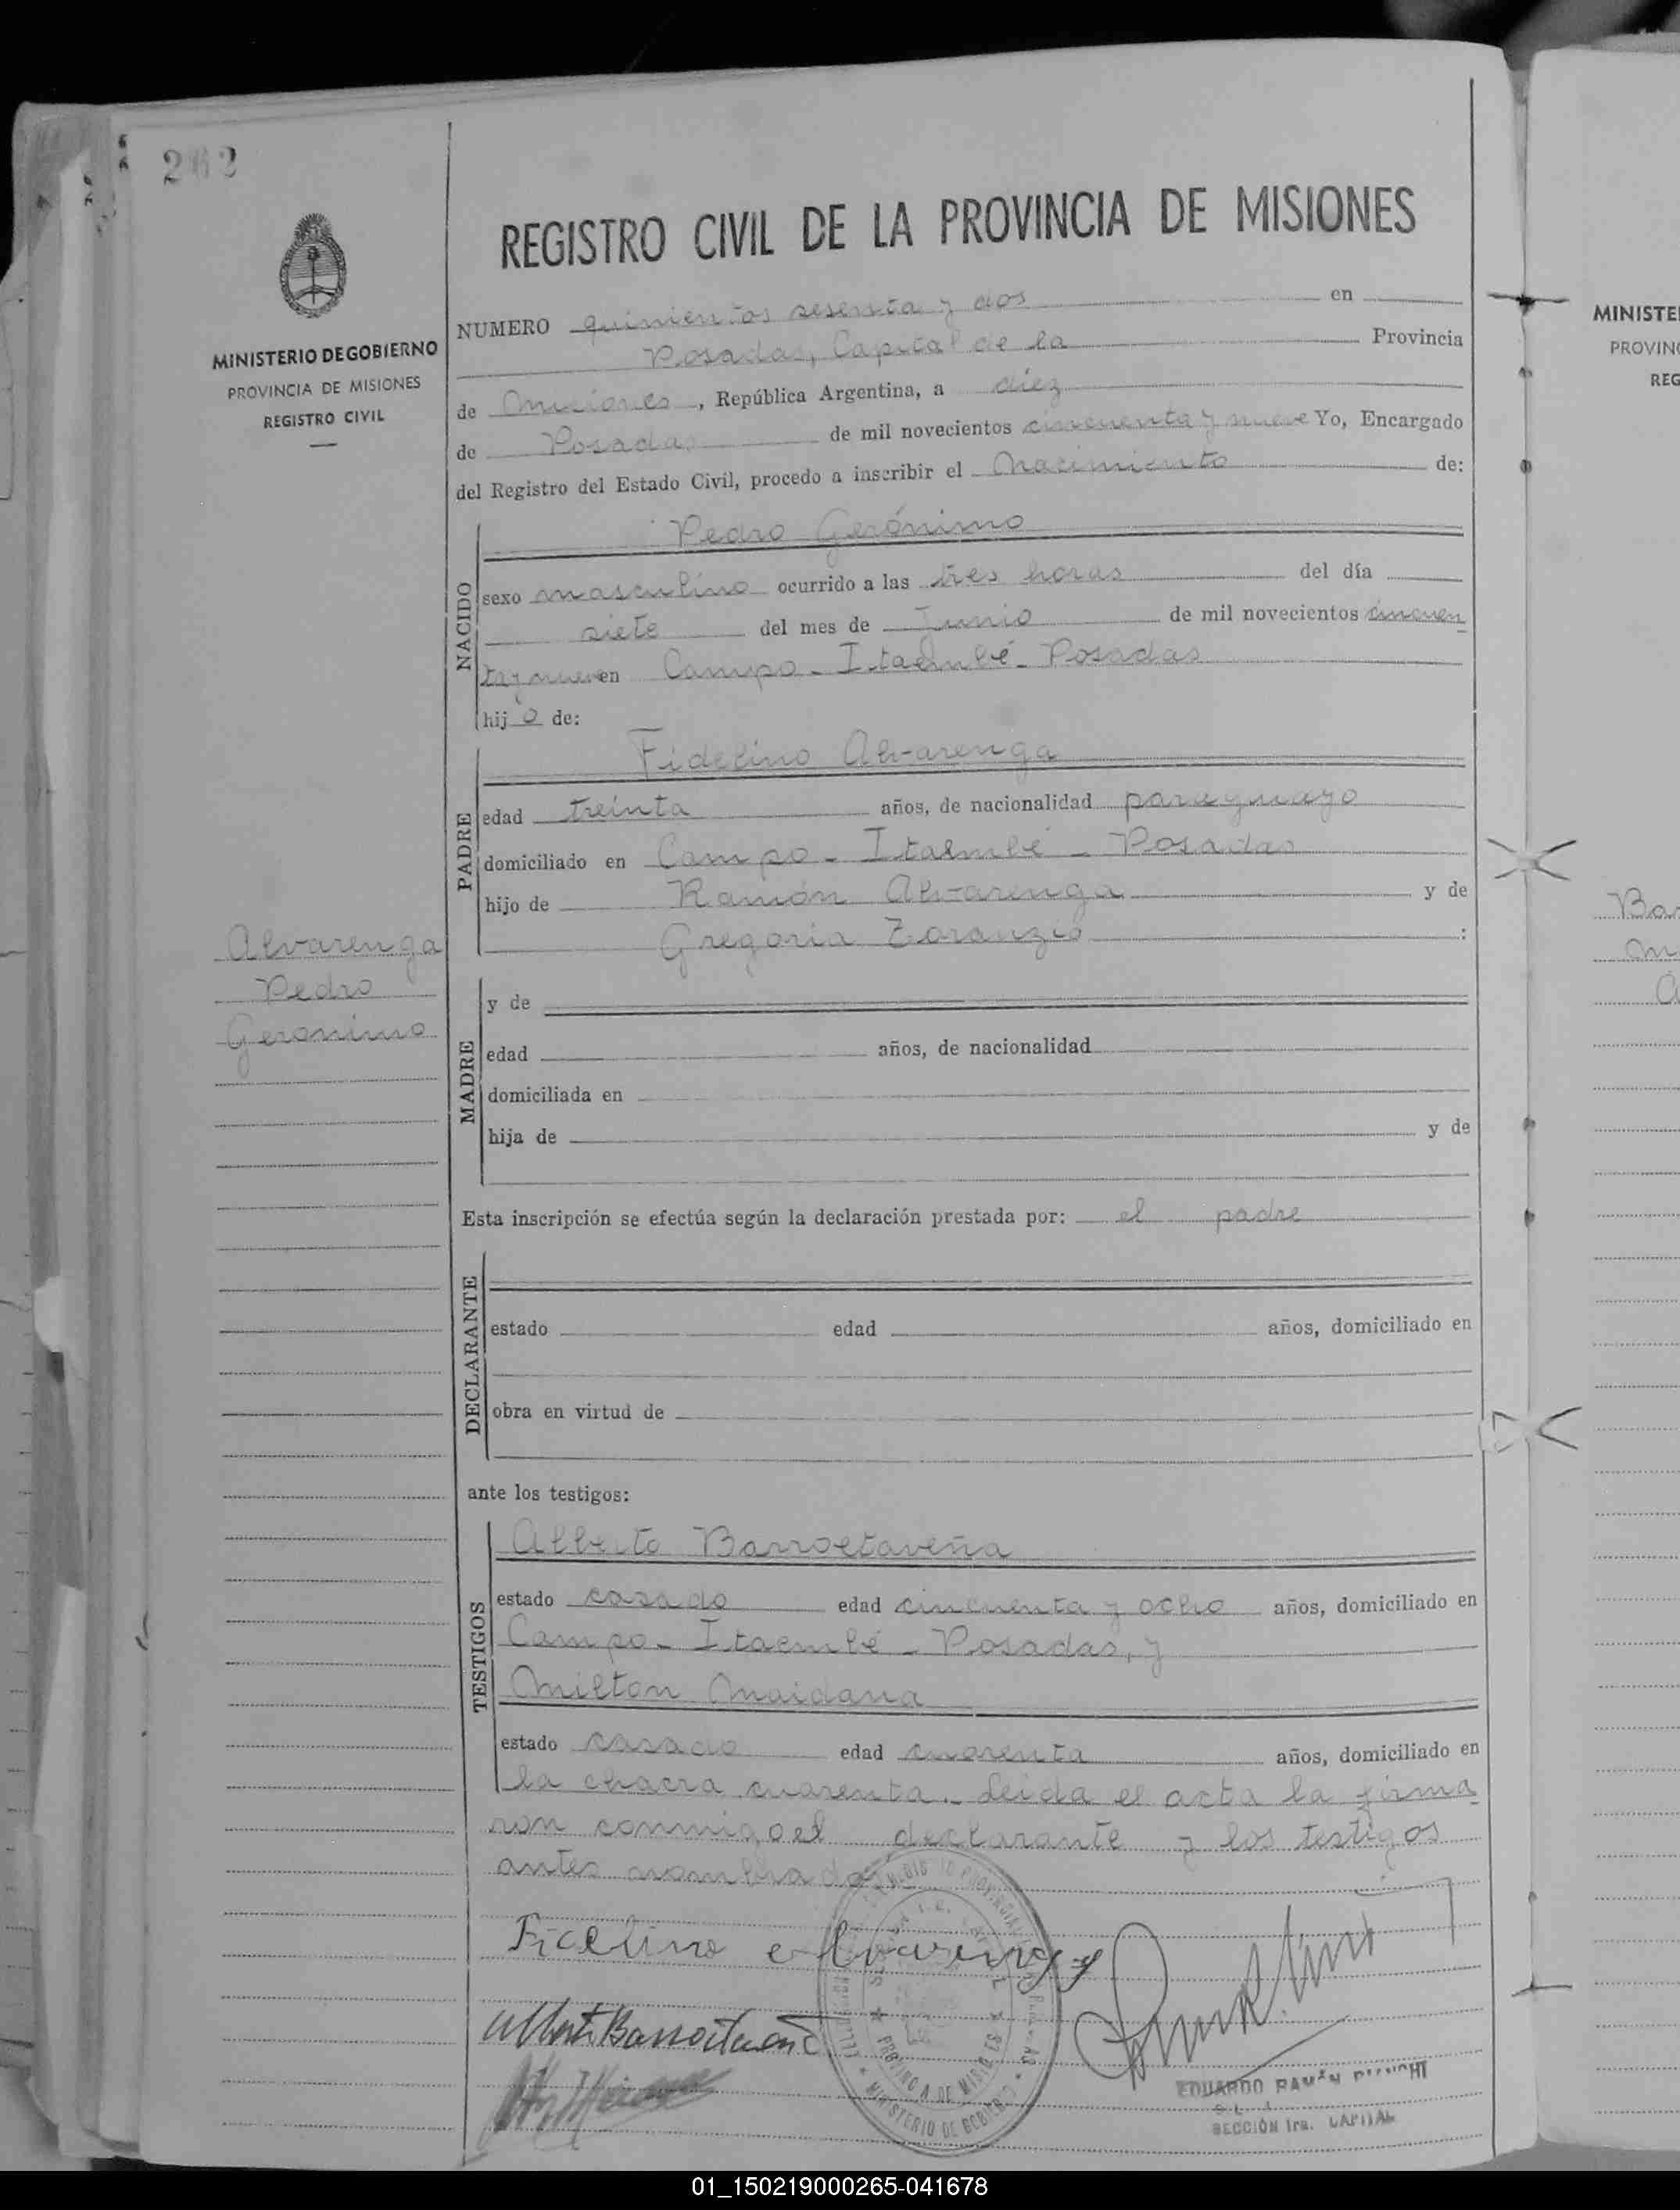 262
REGISTRO CIVIL DE LA PROVINCIA DE MISIONES
MINISTERIO DE GOBIERNO
PROVINCIA DE MISIONES
REGISTRO CIVIL
NUMERO quinientos sesenta y dos en
Posadas, Capital de la Provincia
de Misiones, República Argentina, a diez
de Posadas de mil novecientos cincuenta y nueve Yo, Encargado
del Registro del Estado Civil, procedo a inscribir el Nacimiento de:
NACIDO
Pedro Gerónimo
sexo masculino ocurrido a las tres horas del día
siete del mes de Junio de mil novecientos cincuen
ta y nueve en Campo - Itaembé - Posadas
hijo de:
PADRE
Fidelino Alvarenga
edad treinta años, de nacionalidad paraguayo
domiciliado en Campo - Itaembé - Posadas
hijo de Ramón Alvarenga y de
Gregoria :
Alvarenga
Pedro
Geronimo
MADRE
y de
edad años, de nacionalidad
domiciliada en
hija de y de
Esta inscripción se efectúa según la declaración prestada por: el padre
DECLARANTE
estado edad años, domiciliado en
obra en virtud de
ante los testigos:
TESTIGOS
Alberto Barroetaveña
estado casado edad cincuenta y ocho años, domiciliado en
Campo - Itaembé - Posadas, y
Milton Maidana
estado casado edad cuarenta años, domiciliado en
la chacra cuarenta.- Leida el acta la firma
ron conmigo el declarante y los testigos
antes nombrados
PROVINCIA DE MISIONES
MINISTERIO DE GOBIERNO
EDUARDO RAMÓN BIANCHI
SECCIÓN 1ra. CAPITAL
MINISTE
PROVINC
REG
01_150219000265-041678